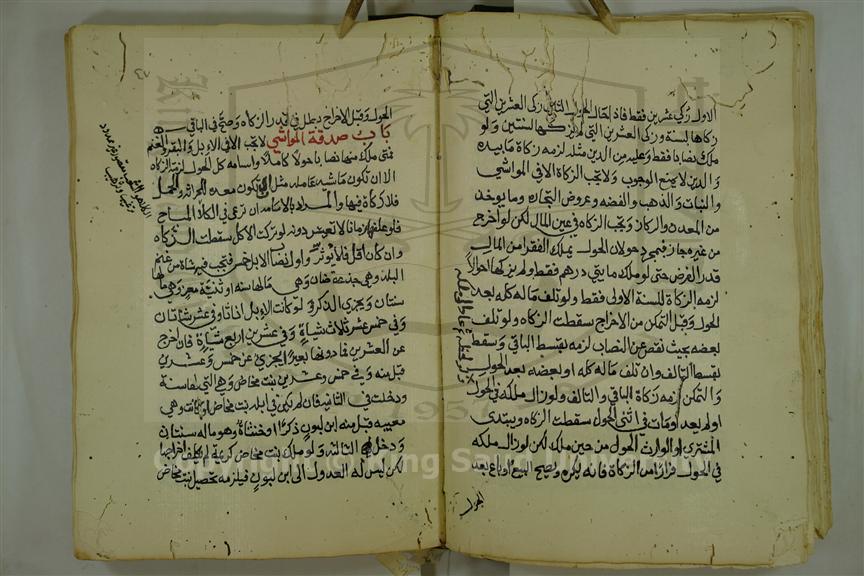 الاول زكى عشرين فقط فاذا حال الحول الثاني زكى العشرين التي
زكاها لسنة وزكى العشرين التي لم يزكها لسنتين ولو
ملك نصابا فقط وعليه من الدين مثله لزمه زكاة ما بيده
والدين لا يمنع الوجوب ولا تجب الزكاة الا في المواشي
والنبات والذهب والفضه وعروض التجاره وما يوخذ
من المعدن والركاز وتجب الزكاه في عين المال لكن لو اخرج
من غيره جاز فبمجرد حولان الحول يملك الفقرا من المال
قدر الفرض حتى لو ملك مايتي درهم فقط ولم يزكها احوالا
لزمه الزكاة للسنة الاولى فقط ولو تلف ماله كله بعد
الحول وقبل التمكن من الاخراج سقطت الزكاه ولو تلف
بعضه بحيث نقص عن النصاب لزمه بقسط الباقي وسقط
بقسط التالف وان تلف ماله كله او بعضه بعد الحول
والتمكن لزمه زكاة الباقي والتالف ولو زال ملكه في الحول
او لم يعد او مات في اثنى الحول سقطت الزكاه ويبتدى
المشتري او الوارث الحول من حين ملكه لكن لو زال ملكه
في الحول فرارا من الزكاة فانه يكره ويصح البيع او باع بعد
الحول
الحول وقبل الاخراج بطل في قدر الزكاه وصح في الباقي
باب صدقة المواشي لا تجب الا في الابل والبقر والغنم
فمتى ملك منها نصابا حولا كاملا واسامه كل الحول لزمته الزكاه
الا ان تكون ماشيه عامله مثل ان تكون معده للحراثه والحمل
فلا زكاة فيها والمراد بالاسامه ان ترعى في الكلا المباح
فلو علفها زمانا لا تعيش دونه لو تركت الاكل سقطت الزكاه
وان كان اقل فلا يوثر واول نصاب الابل خمس فتجب فيه شاة من غنم
البلد وهي جذعة ضان وهي مالها سنه او ثنية معز وهي مالها
سنتان ويجزي الذكر ولو كانت الابل اناثا وفي عشر شاتان
وفي خمس عشر ثلاث شياة وفي عشرين اربع شياة فان اخرج
عن العشرين فما دونها بعيرا يجزي عن خمس وعشرين
قبل منه وفي خمس وعشرين بنت مخاض وهي التي لها سنة
ودخلت في الثانيه فان لم تكن في ابله بنت مخاض او كانت وهي
معيبه قبل منه ابن لبون ذكرا او خنثاة وهو ماله سنتان
ودخل في الثالثه ولو ملك بنت مخاض كريمة لم يكلف اخراجها
لكن ليس له العدول الى ابن لبون فيلزمه تحصيل بنت مخاض